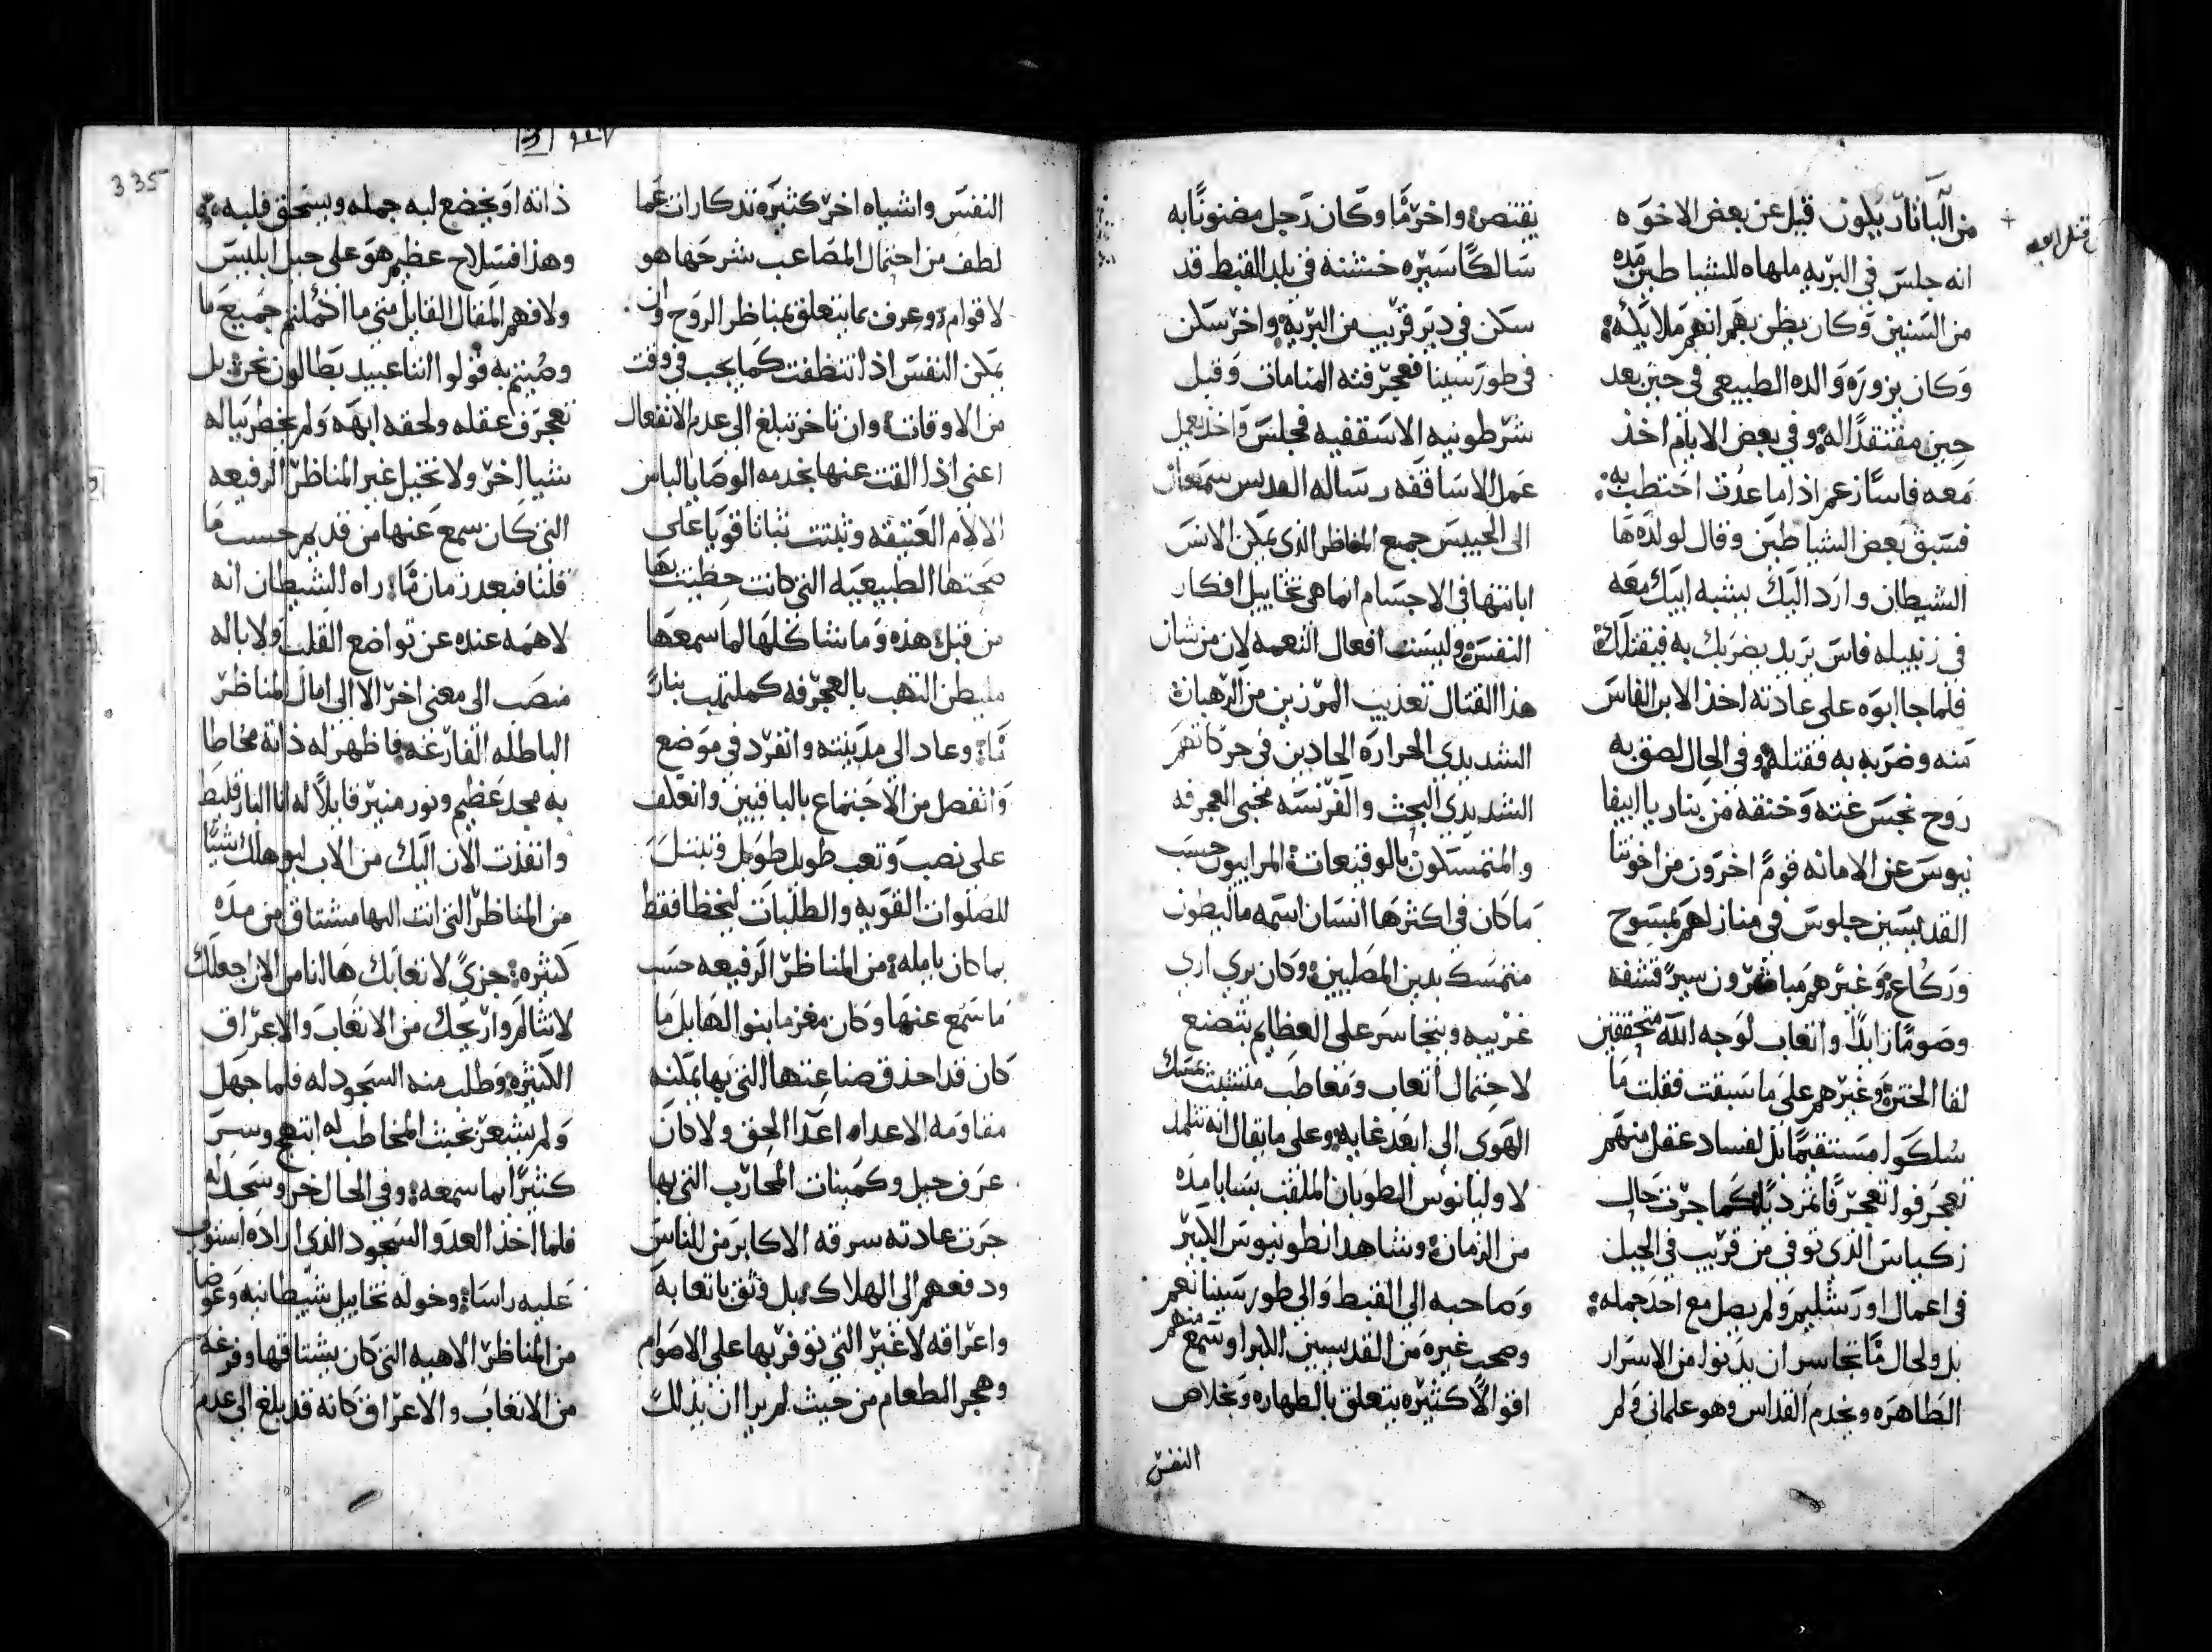 من البانادبلون قيل عن بعض الاخوه
انه جلس في البريه ملهاه للشياطين مده
من السنين وكان يظن بهم انهم ملايكه
وكان يزوره والده الطبيعي في حين بعد
حين مفتقدًا له وفي بعض الايام اخذ
معه فاسًا زعم اذا ما عدت احتطب به
فسبق بعض الشياطين وقال لولده ها
الشيطان وارد اليك بشبه ابيك معه
في زنبيله فاس يريد يضربك به فيقتلك
فلما جا ابوه على عادته اخذ الابن الفاس
منه وضربه به فقتله وفي الحال لصق به
روح نجس غته وخنقه من بنار يا ابيفا
نيوس عن الامانه قومً اخرون من اخوتنا
القديسين جلوس في منازلهم بمسوح
وركاع وغيرهم مباشرون سيرً قشفه
وصومًا زايدًا واتعاب لوجه الله متحققين
لقا الختن وغيرهم على ما سبقت فقلت ما
سلكوا مستقيمًا بل لفساد عقل منهم
تعجرفوا تعجرفًا كما جرت حال
زكياس الذي توفي من قريب في الجبل
في اعمال اورشليم ولم يصل مع احد جمله
بل ولحال ما تجاسر ان يدنوا من الاسرار
الطاهره ويخدم القداس وهو علماني ولم
يقتنص واخر ما وكان رجل مضنونًا به
سالكًا سيره خشنه في بلد القبط قد
سكن في دير قريب من البريه واخر سكن
في طور سينا فعجرفته المنامات وقبل
شرطونيه الاسقفيه فجلس واخذ يعمل
عمل الاساقفه رساله القديس سمعان
الى الحبيس جميع المناظر الذي يمكن الانس
ابانتها في الاجسام انما هي تخاييل افكار
النفس وليست افعال النعمه لان من شان
هذا القتال تعذيب المرزين من الرهبان
الشديدي الحراره الحادين في حركاتهم
الشديدي البحث والفرنسه محبي العجرفه
والمتمسكون بالوقيعات المراييون حسب
ما كان في اكثرها انسان اسمه مالبطون
متمسك بدين المصليين وكان يري اري
غريبه ويتجاسر على العظايم يتصنع
لاحتمال اتعاب ومعاطب متشبث بمسك
الهوي الى ابعد غايه وعلى ما يقال انه تتلمذ
لاوليانوس الطوبان الملقب بسابا مده
من الزمان وشاهد انطونيوس الكبير
وصاحبه الى القبط والى طور سينا نعم
وصحب غيره من القديسين الكبرا وسمع منهم
اقوالًا كثيره يتعلق بالطهاره وبخلاص
النفس
قتل ابيه
335
النفس واشياه اخر كثيره تذكارات عما
لطف من احتمال المصاعب شرحها هو
لاقوام وعرف بما يتعلق بمناظر الروح وان
يمكن النفس اذا تنظفت كما يجب في وقت
من الاوقات وان تاخر تبلغ الى عدم الانفعال
اعني اذا القت عنها بخدمه الوصايا لباس
الالام العتيقه وثبتت ثباتا قويا على
صحتها الطبيعيه التي كانت حظيت بها
من قبل هذه وما شاكلها لما سمعها
ملبطن التهب بالعجرفه كملتهب بنارً
ما وعاد الى مدينته وانفرد في موضع
وانفصل من الاجتماع بالباقيين وانعكف
على نصب وتعب طويل طويل وتبتل
للصلوات القويه والطلبات ليحظا فقط
بما كان يامله من المناظر الرفيعه حسب
ما سمع عنها وكان مغرما بنوالها بل ما
كان قد احذق صناعتها التي بها يمكنه
مقاومه الاعداء اعدا الحق ولا كان
عرف حيل وكمينات المحارب التي بها
جرت عادته سرقه الاكابر من الناس
ودفعهم الى الهلاك بل وثق باتعابه
واعراقه لا غير التي توفر بها على الاصوام
وهجر الطعام من حيث لم يرا ان يذلل
ذاته او يخضع لبه جمله ويسحق قلبه
وهذا فسلاح عظيم هو على حيل ابليس
ولا فهم المقال القايل متي ما اكملتم جميع ما
وصيتم به قولوا اننا عبيد بطالون نحن بل
تعجرف عقله ولحقه ابهه ولم يخطر بباله
شيا اخر ولا تخيل غير المناظر الرفيعه
التي كان سمع عنها من قديم حسب ما
قلنا فبعد زمان ما راه الشيطان انه
لا همه عنده عن تواضع القلب ولا باله
منصب الى معني اخر الا الى امال المناظر
الباطله الفارغه فاظهر له ذاته مخاطبا
به مجد عظيم ونور منير قايلًا له انا البارقليط
وانفذت الان اليك من الاب ليوهلك شيًا
من المناظر التي انت اليها مشتاق من مده
كثيره جزيً لاتعابك ها انا من الان اجعلك
لا تتالم واريحك من الاتعاب والاعراق
الكثيره وطلب منه السجود له فلما جهل
ولم يشعر بخبث المخاطب له ابتهج وسر
كثيرًا بما سمعه وفي الحال خر وسجد له
فلما اخذ العدو السجود الذي اراده استولي
عليه راسا وخوله تخاييل شيطانيه وعوضا
من المناظر الاهيه التي كان يشتاقها وفرغه
من الاتعاب والاعراق كانه قد بلغ الى عدم